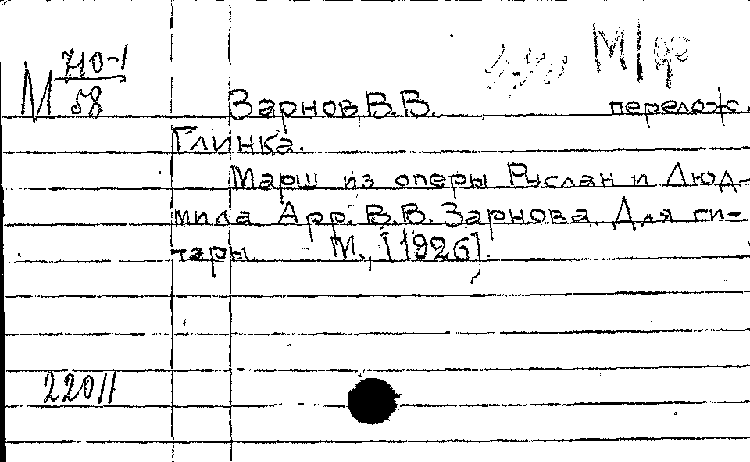 М 710-1/58
М/ф
Зарнов В.В. переложс.
Глинка.
Марш из оперы Руслан и Люд-
мила Арр. В.В. Зарнова Для ги-
тары. М., [1926].
22011